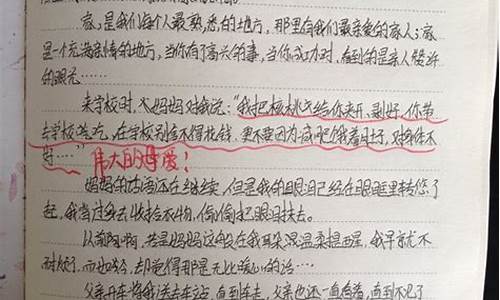 家，是我们每个人最熟悉的地方，那里有我们最亲爱的家人；家
是一个充满亲情的地方，当你有了高兴的事，当你成功时，看到的是亲人赞许
的眼光……
来学校时，妈妈对我说：“我把核桃给你夹开、剥好，你带
去学校吃，在学校别舍不得花钱，更不要因为减肥饿着肚子，对身体不
好……” 伟大的母爱！
妈妈的话还在继续，但是我的眼泪已经在眼眶里转悠了
起，我当过去收拾衣物，偷偷把眼泪抹去。
以前啊，若是妈妈这般在我耳朵温柔提醒，我早就不
耐烦了，而如今，却觉得那是无比暖心的话……
父亲开车将我送去车站，直到车走，父亲也还一直看着，直到不见了